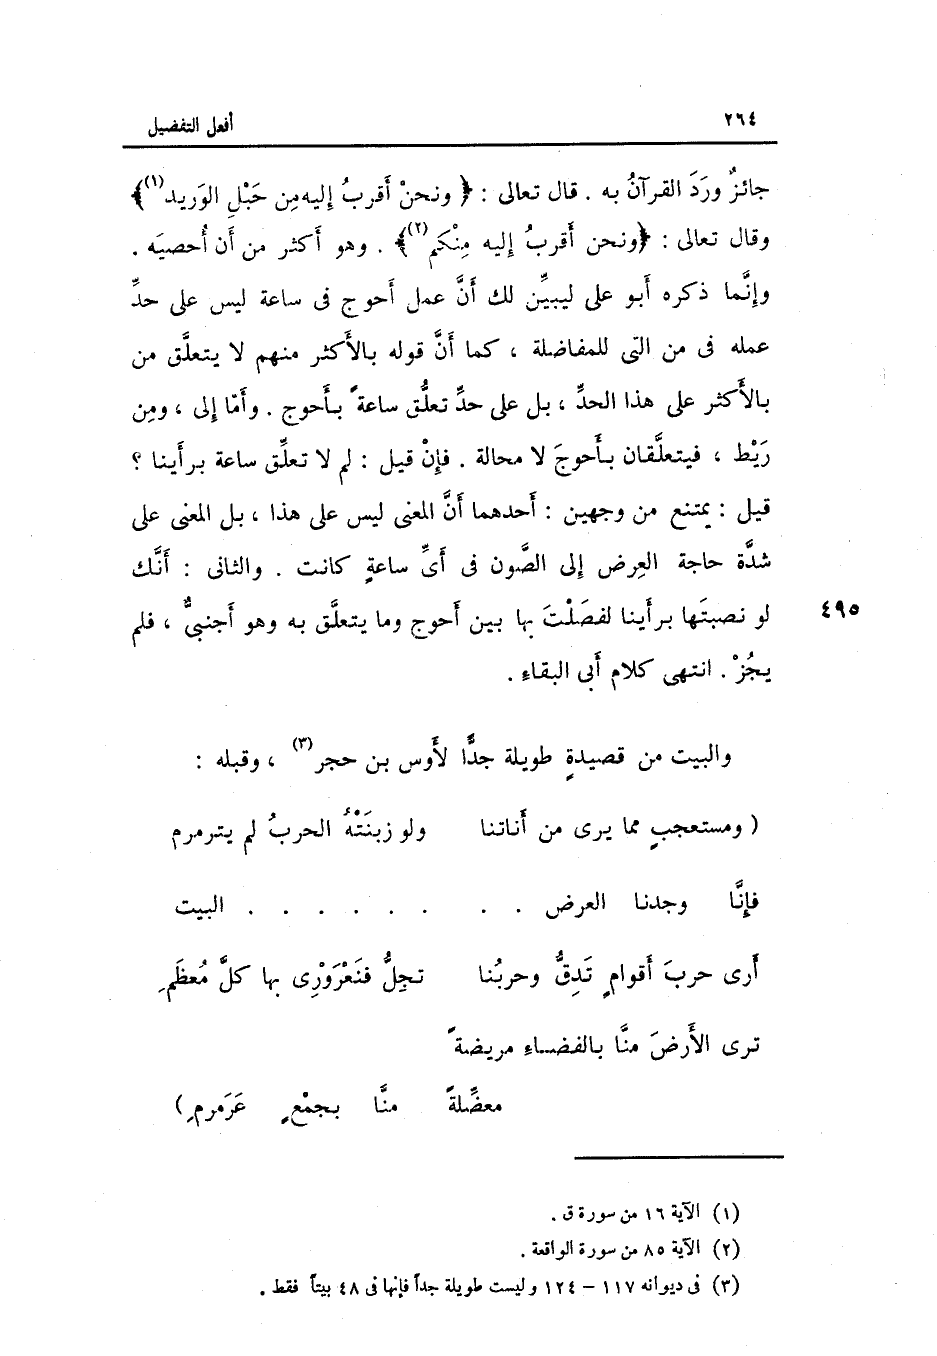 ٢٦٤ أفعل التفضيل
جائزٌ ورَدَ القرآنُ به . قال تعالى : ﴿ ونحنْ أَقربُ إليه مِن حَبْلِ الوَريد (١)﴾
وقال تعالى : ﴿ونحن أَقربُ إليه مِنْكم (٢)﴾ . وهو أَكثر من أَن أُحصيَه .
وإنَّما ذكره أَبو على ليبيِّن لك أَنَّ عمل أَحوج فى ساعة ليس على حدِّ
عمله فى من التى للمفاضلة ، كما أَنَّ قوله بالأَكثر منهم لا يتعلَّق من
بالأَكثر على هذا الحدِّ ، بل على حدِّ تعلُّق ساعةً بأَحوج . وأَمّا إلى ، ومِن
رَيْط ، فيتعلَّقان بأَحوجَ لا محالة . فإنْ قيل : لم لا تعلِّق ساعة برأَينا ؟
قيل : يمتنع من وجهين : أَحدهما أَنَّ المعنى ليس على هذا ، بل المعنى على
شدَّة حاجة العِرض إلى الصَّون فى أَىِّ ساعةٍ كانت . والثانى : أَنَّك
لو نصبتَها برأَينا لفصَلْتَ بها بين أَحوج وما يتعلَّق به وهو أَجنبىٌّ ، فلم ٤٩٥
يجُزْ . انتهى كلام أَبى البقاءِ .
والبيت من قصيدةٍ طويلة جدًّا لأَوس بن حجر (٣) ، وقبله :
( ومستعجبٍ مما يرى من أَناتنا ولو زبنَتْهُ الحربُ لم يترمرم
فإنَّا وجدنا العرض . . . . . . . . . البيت
أَرى حربَ أَقوامٍ تَدِقُّ وحربُنا تجِلُّ فنَعْرَوْرِى بها كلَّ مُعظَمِ
ترى الأَرضَ منَّا بالفضاءِ مريضةً
معضِّلةً منَّا بجمْعٍ عَرَمرمِ )
(١) الآية ١٦ من سورة ق .
(٢) الآية ٨٥ من سورة الواقعة .
(٣) فى ديوانه ١١٧ – ١٢٤ وليست طويلة جداً فإنها فى ٤٨ بيتاً فقط .